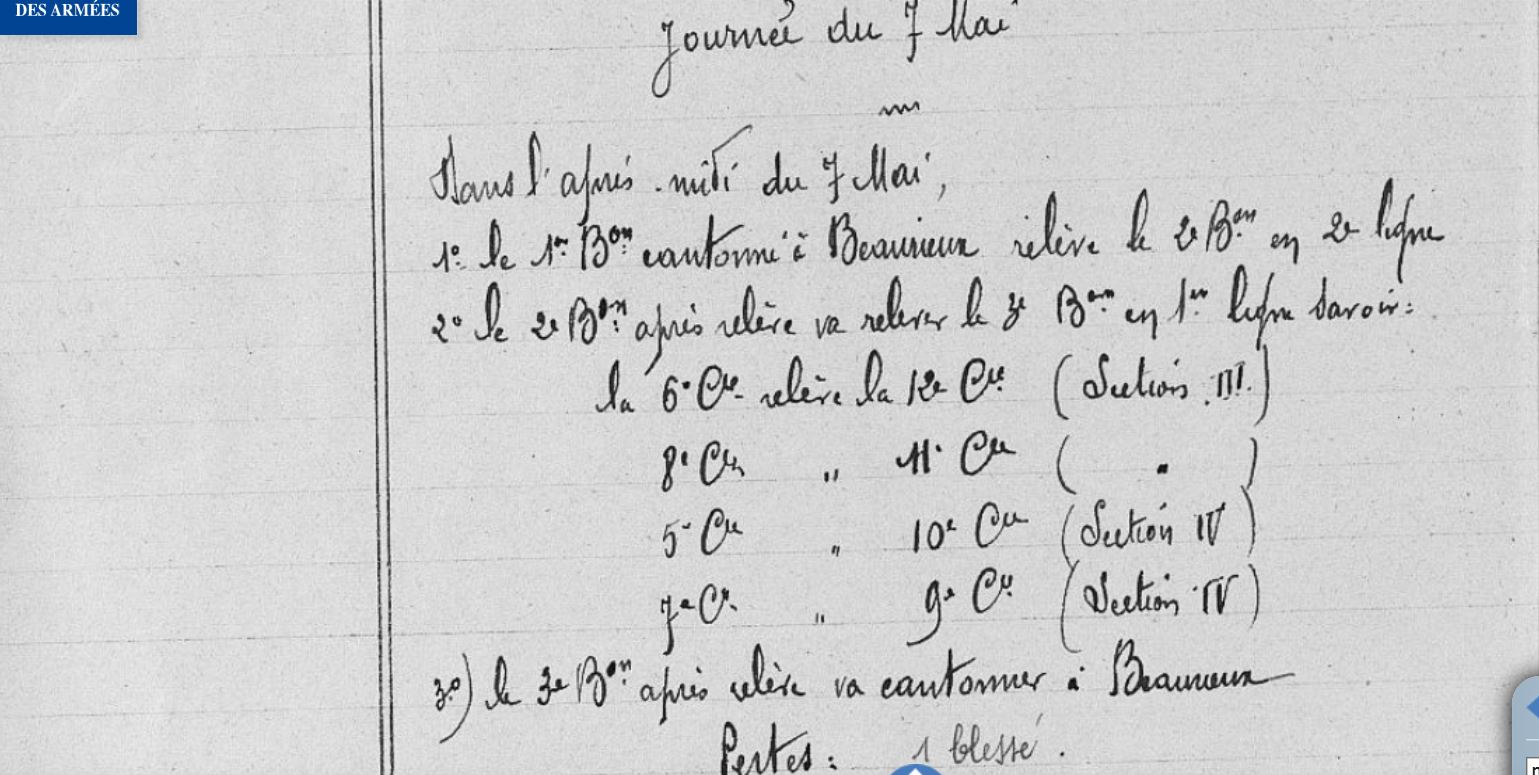 DES ARMÉES
Journée du 7 Mai
Dans l'après-midi du 7 Mai,
1º le 1er Bon cantonné à Beaurieux relève le 2e Bon en 2e ligne
2º le 2e Bon après relève va relever le 3e Bon en 1re ligne savoir:
la 6e Cie relève la 12e Cie (Section III.)
8e Cie " 11e Cie ( " )
5e Cie " 10e Cie (Section IV)
7e Cie " 9e Cie (Section IV)
3º) le 3e Bon après relève va cantonner à Beaurieux
Pertes: 1 blessé.